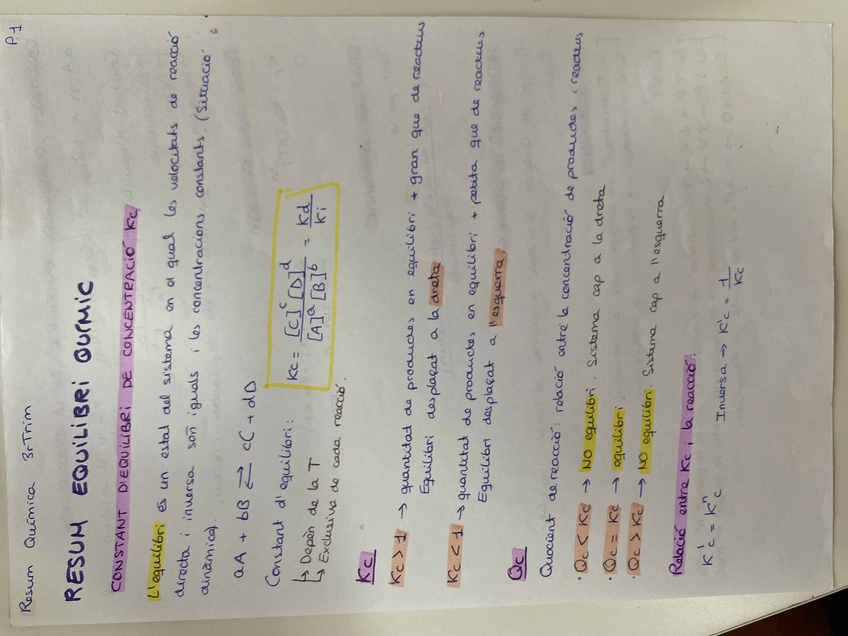 Resum Química 3rTrim
P.1
RESUM EQUILIBRI QUÍMIC
CONSTANT D'EQUILIBRI DE CONCENTRACIÓ Kc
L'equilibri és un estat del sistema en el qual les velocitats de reacció
directa i inversa són iguals i les concentracions constants. (Situació
dinàmica).
aA + bB ⇄ cC + dD
Constant d'equilibri:
↳ Depèn de la T
↳ Exclusiva de cada reacció.
Kc = [C]^c [D]^d / [A]^a [B]^b = Kd / Ki
Kc
Kc > 1 → quantitat de productes en equilibri + gran que de reactius
Equilibri desplaçat a la dreta
Kc < 1 → quantitat de productes en equilibri + petita que de reactius
Equilibri desplaçat a l'esquerra,
Qc
Quocient de reacció: relació entre la concentració de productes i reactius
· Qc < Kc → NO equilibri. Sistema cap a la dreta
· Qc = Kc → equilibri.
· Qc > Kc → NO equilibri. Sistema cap a l'esquerra
Relació entre Kc i la reacció:
K'c = K^n c
Inversa → K'c = 1 / Kc